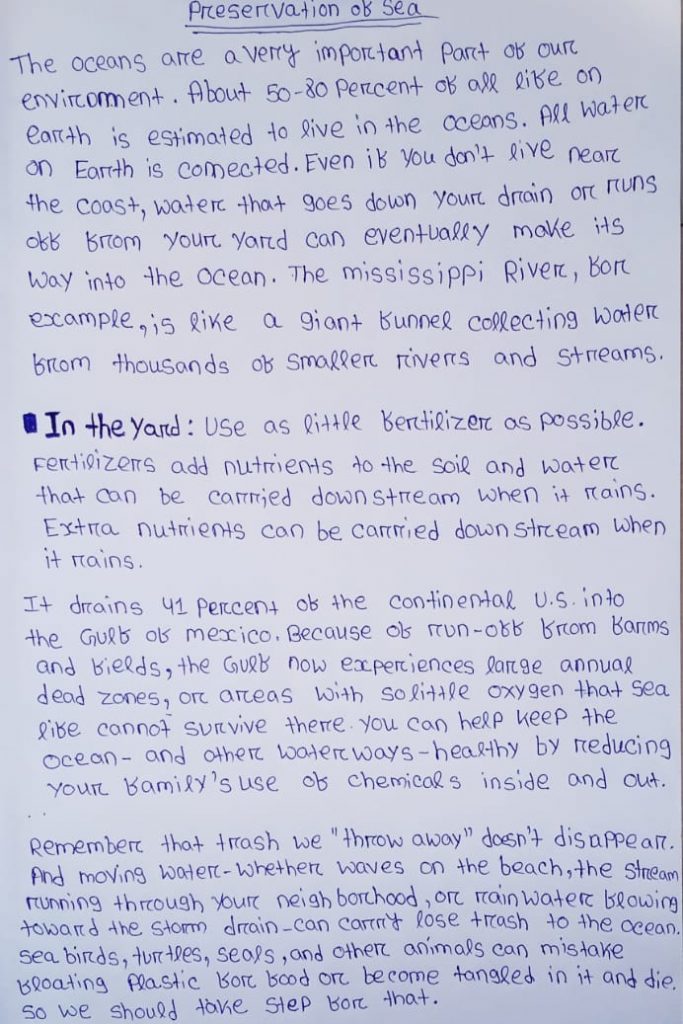 Preservation of Sea
The oceans are a very important part of our
environment. About 50-80 percent of all life on
earth is estimated to live in the oceans. All water
on Earth is connected. Even if you don't live near
the coast, water that goes down your drain or runs
off from your yard can eventually make its
way into the ocean. The mississippi River, for
example, is like a giant funnel collecting water
from thousands of smaller rivers and streams.
In the yard: Use as little fertilizer as possible.
Fertilizers add nutrients to the soil and water
that can be carried downstream when it rains.
Extra nutrients can be carried downstream when
it rains.
It drains 41 percent of the continental U.S. into
the Gulf of mexico. Because of run-off from farms
and fields, the Gulf now experiences large annual
dead zones, or areas with so little oxygen that sea
life cannot survive there. you can help keep the
ocean- and other waterways-healthy by reducing
your family's use of chemicals inside and out.
Remember that trash we "throw away" doesn't disappear.
And moving water-whether waves on the beach, the stream
running through your neighborhood, or rainwater flowing
toward the storm drain-can carry lose trash to the ocean.
sea birds, turtles, seals, and other animals can mistake
floating plastic for food or become tangled in it and die.
so we should take step for that.